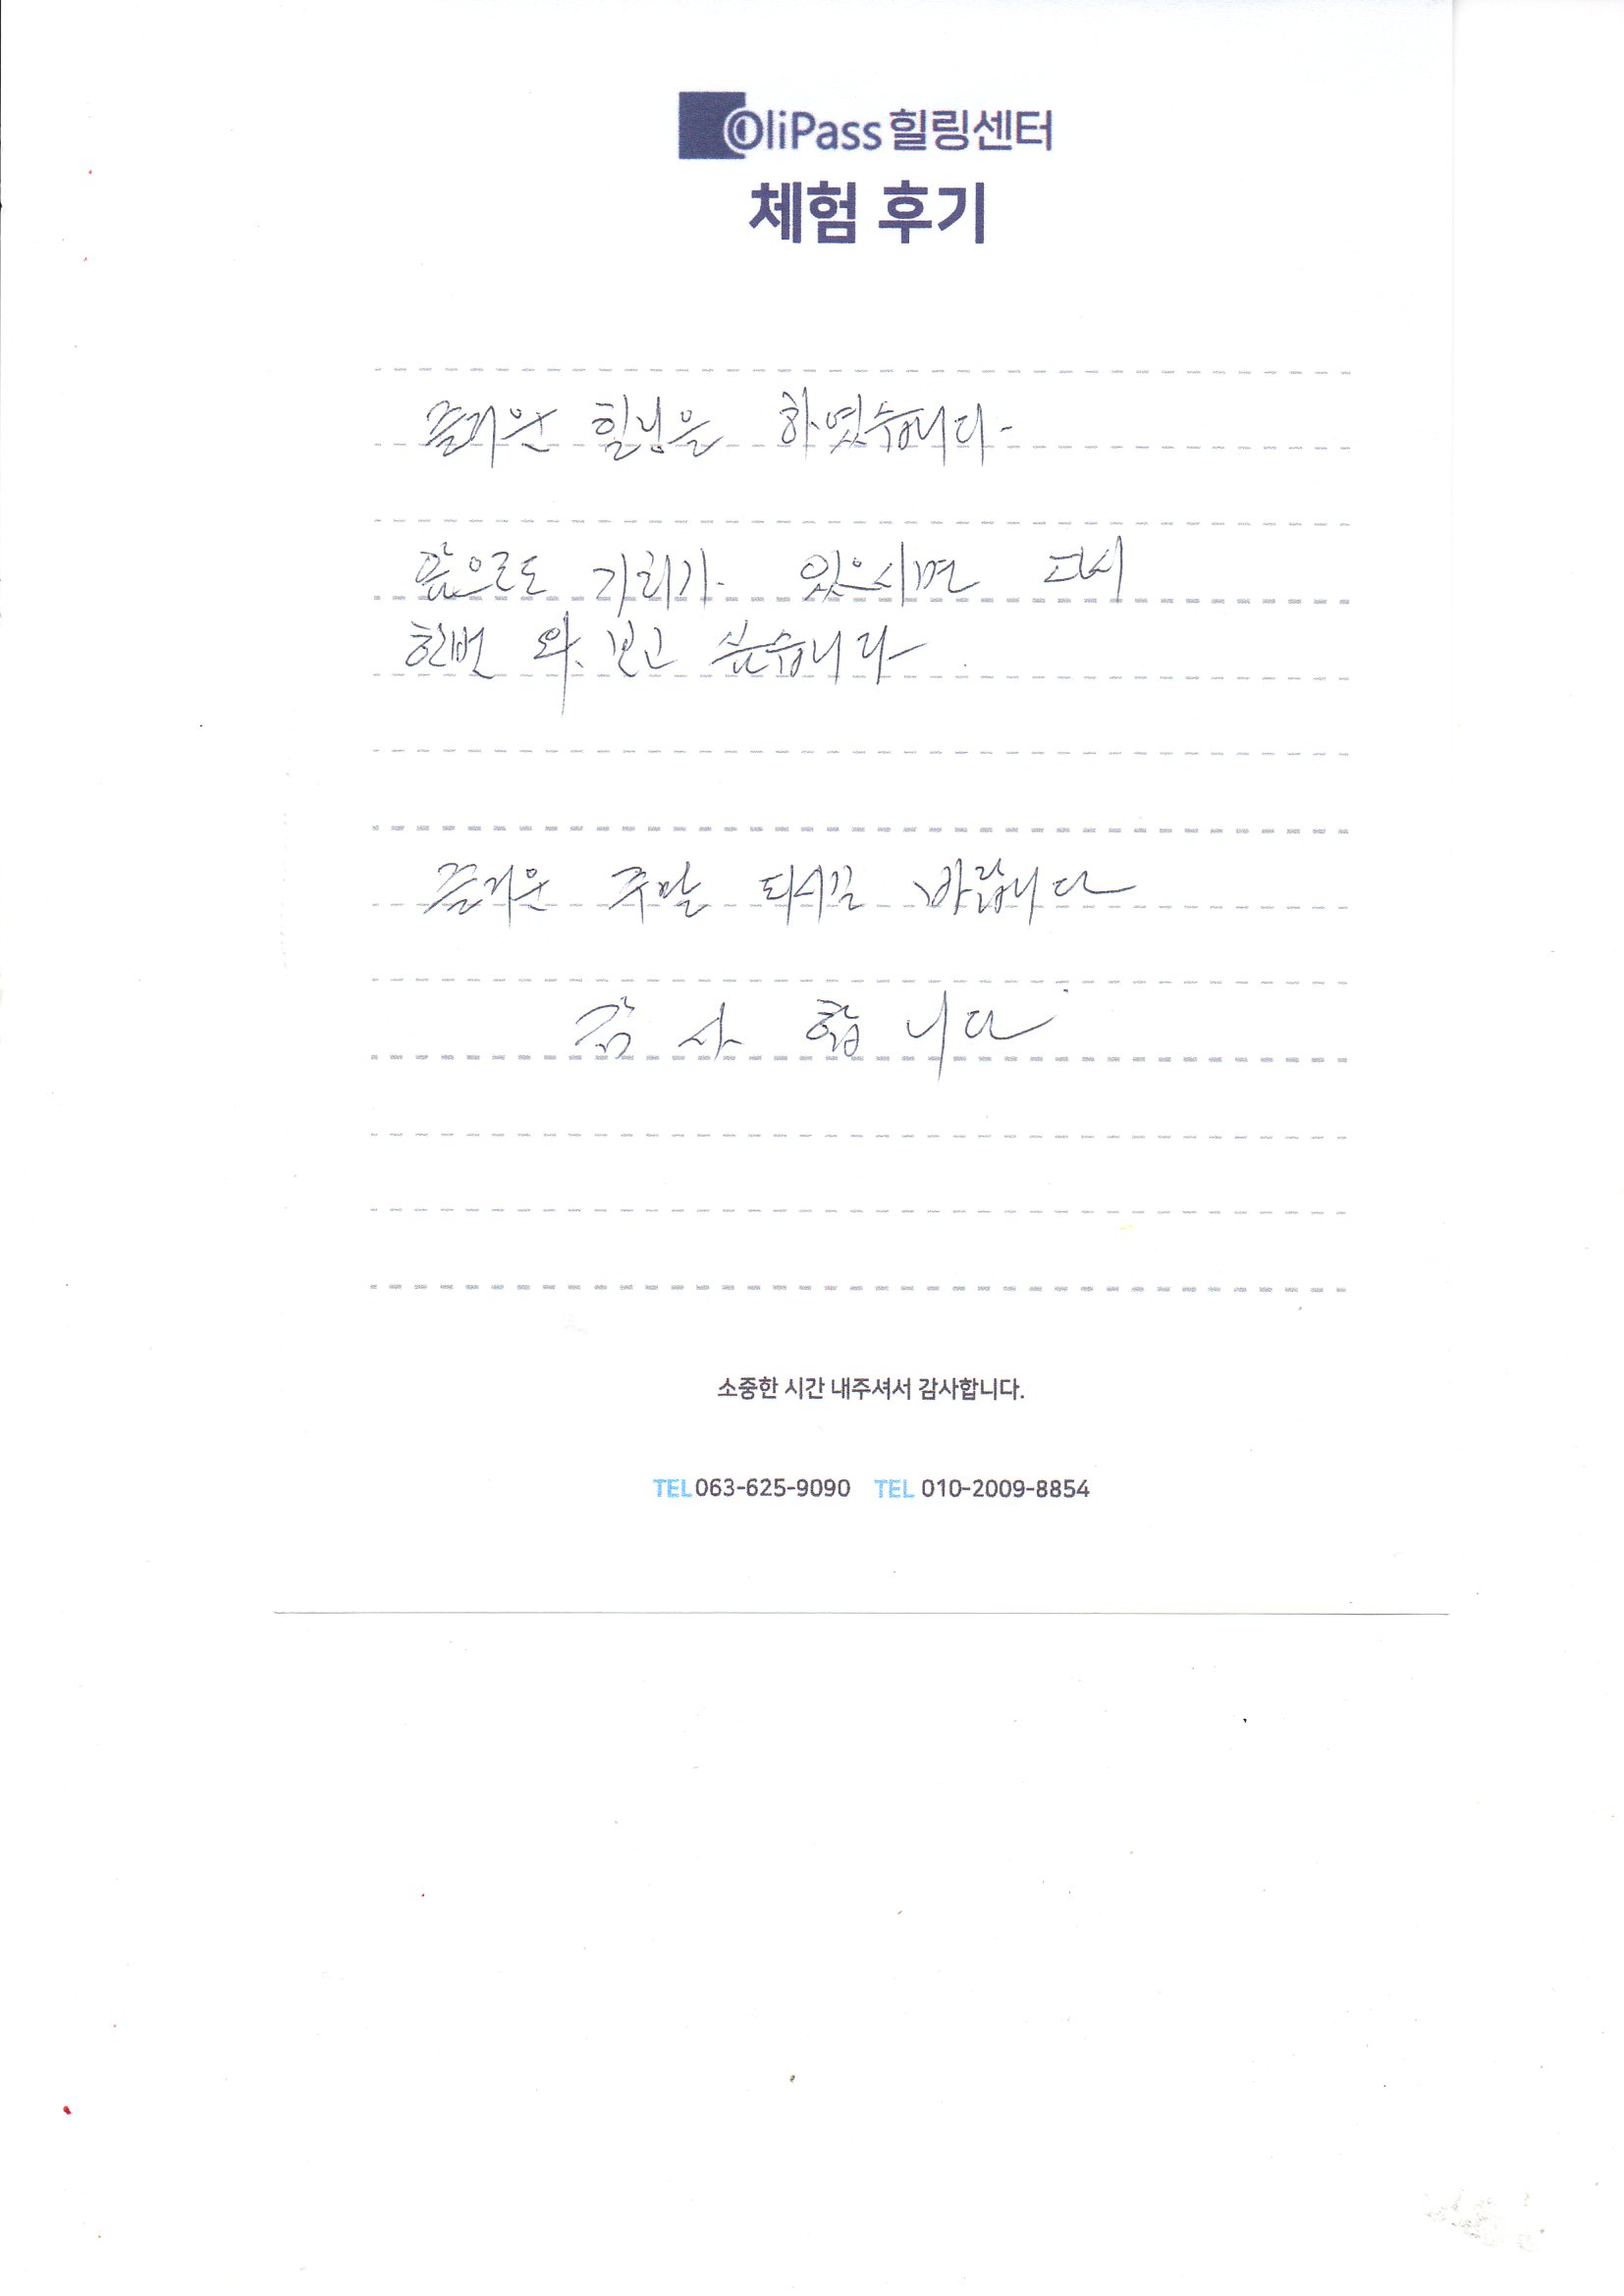 OliPass 힐링센터
체험 후기
즐거운 힐링을 하였습니다.
앞으로도 기회가 있으시면 다시
한번 와 보고 싶습니다.
즐거운 주말 되시길 바랍니다
감사합니다
소중한 시간 내주셔서 감사합니다.
TEL 063-625-9090 TEL 010-2009-8854